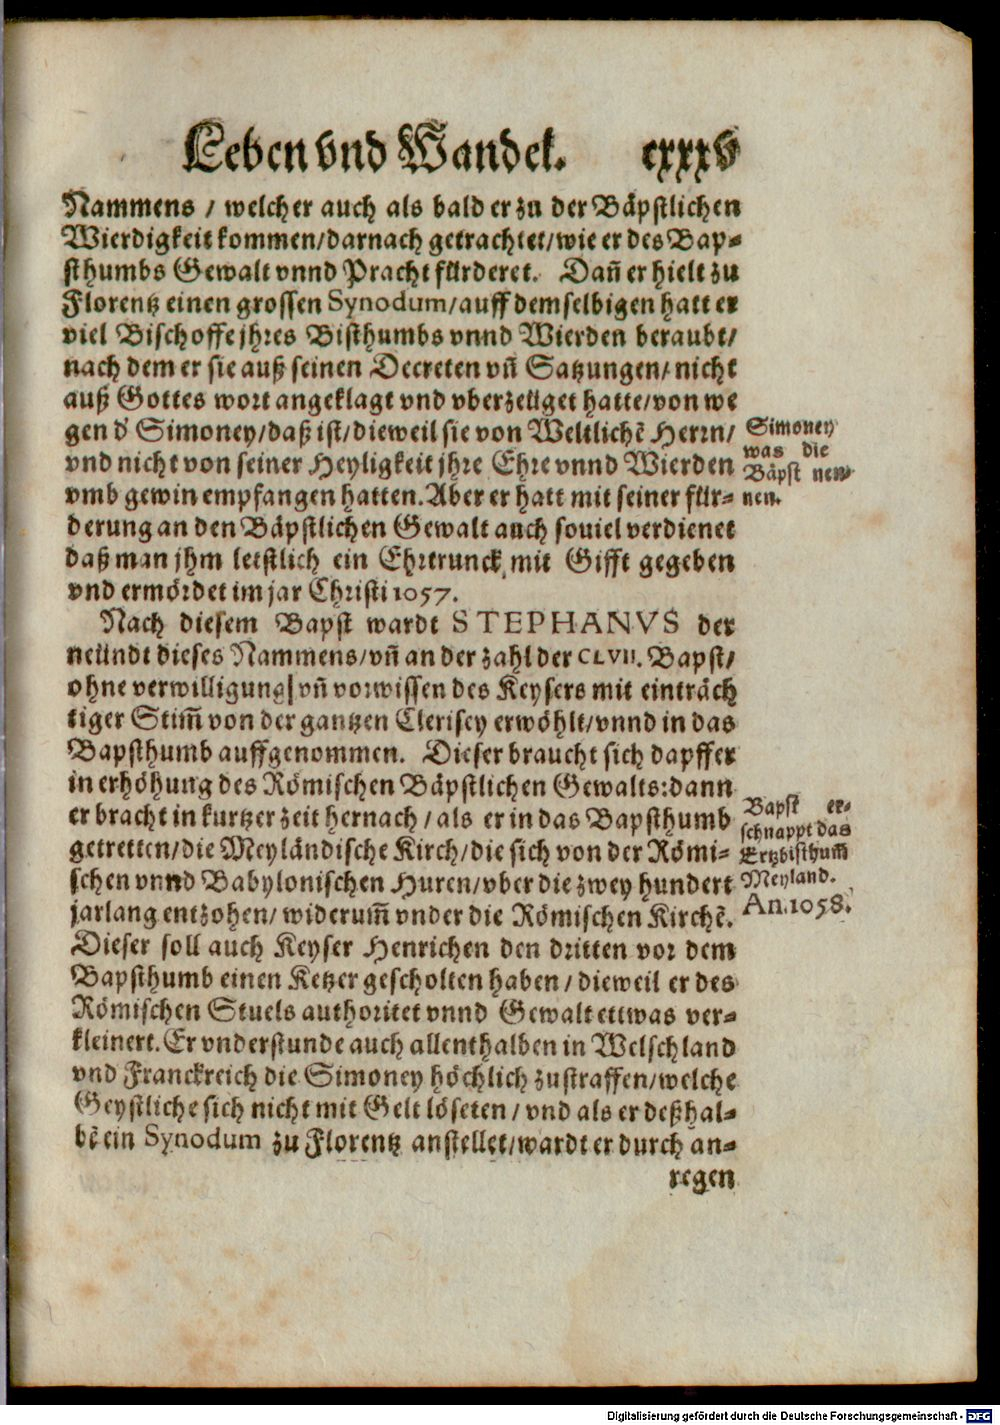 Leben vnd Wandel. cxxxv
Nammens / welcher auch als bald er zu der Bäpstlichen
Wierdigkeit kommen/darnach getrachtet/wie er des Bap-
sthumbs Gewalt vnnd Pracht fürderet. Dañ er hielt zu
Florentz einen grossen Synodum/auff demselbigen hatt er
viel Bischoffe jhres Bisthumbs vnnd Wierden beraubt/
nach dem er sie auß seinen Decreten vñ Satzungen/nicht
auß Gottes wort angeklagt vnd vberzeüget hatte/von we
gen d' Simoney/daß ist/dieweil sie von Weltlichẽ Herrn/
vnd nicht von seiner Heyligkeit jhre Ehre vnnd Wierden
vmb gewin empfangen hatten. Aber er hatt mit seiner für-
derung an den Bäpstlichen Gewalt auch souiel verdienet
daß man jhm letstlich ein Ehrtrunck mit Gifft gegeben
vnd ermördet im jar Christi 1057.
Simoney
was die
Bäpst nen-
nen.
Nach diesem Bapst wardt STEPHANVS der
neündt dieses Nammens/vñ an der zahl der CLVII. Bapst/
ohne verwilligung/vñ vorwissen des Keysers mit einträch
tiger Stim̃ von der gantzen Clerisey erwöhlt/vnnd in das
Bapsthumb auffgenommen. Dieser braucht sich dapffer
in erhöhung des Römischen Bäpstlichen Gewalts:dann
er bracht in kurtzer zeit hernach / als er in das Bapsthumb
getretten/die Meyländische Kirch/die sich von der Römi-
schen vnnd Babylonischen Huren/vber die zwey hundert
jarlang entzohen/ widerum̃ vnder die Römischen Kirchẽ.
Dieser soll auch Keyser Henrichen den dritten vor dem
Bapsthumb einen Ketzer gescholten haben / dieweil er des
Römischen Stuels authoritet vnnd Gewalt ettwas ver-
kleinert. Er vnderstunde auch allenthalben in Welschland
vnd Franckreich die Simoney höchlich zustraffen/welche
Geystliche sich nicht mit Gelt löseten / vnd als er deßhal-
bẽ ein Synodum zu Florentz anstellet/wardt er durch an-
regen
Bapst er-
schnappt das
Ertzbisthum̃
Meyland.
An. 1058.
Digitalisierung gefördert durch die Deutsche Forschungsgemeinschaft - DFG